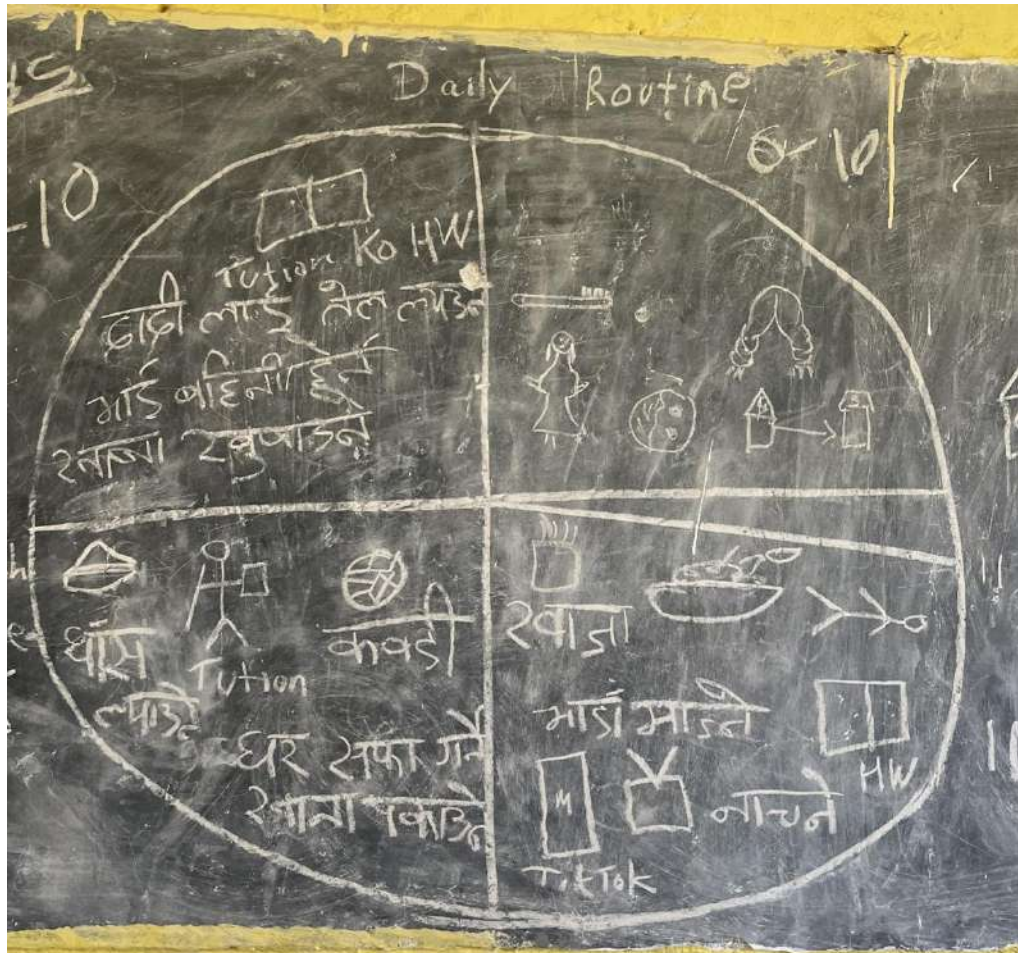 Daily Routine
6-10
-10
Ko HW
Tution
दादी लाई तेल ल्याउने
भाई बहिनी हेर्न
खाना ख्वाउने
घाँस
ल्याउने
Tution
कवर्डी
घर सफा गर्ने
खाना पकाउने
खाजा
भाडाँ माझ्ने
HW
M
TikTok
नाचने